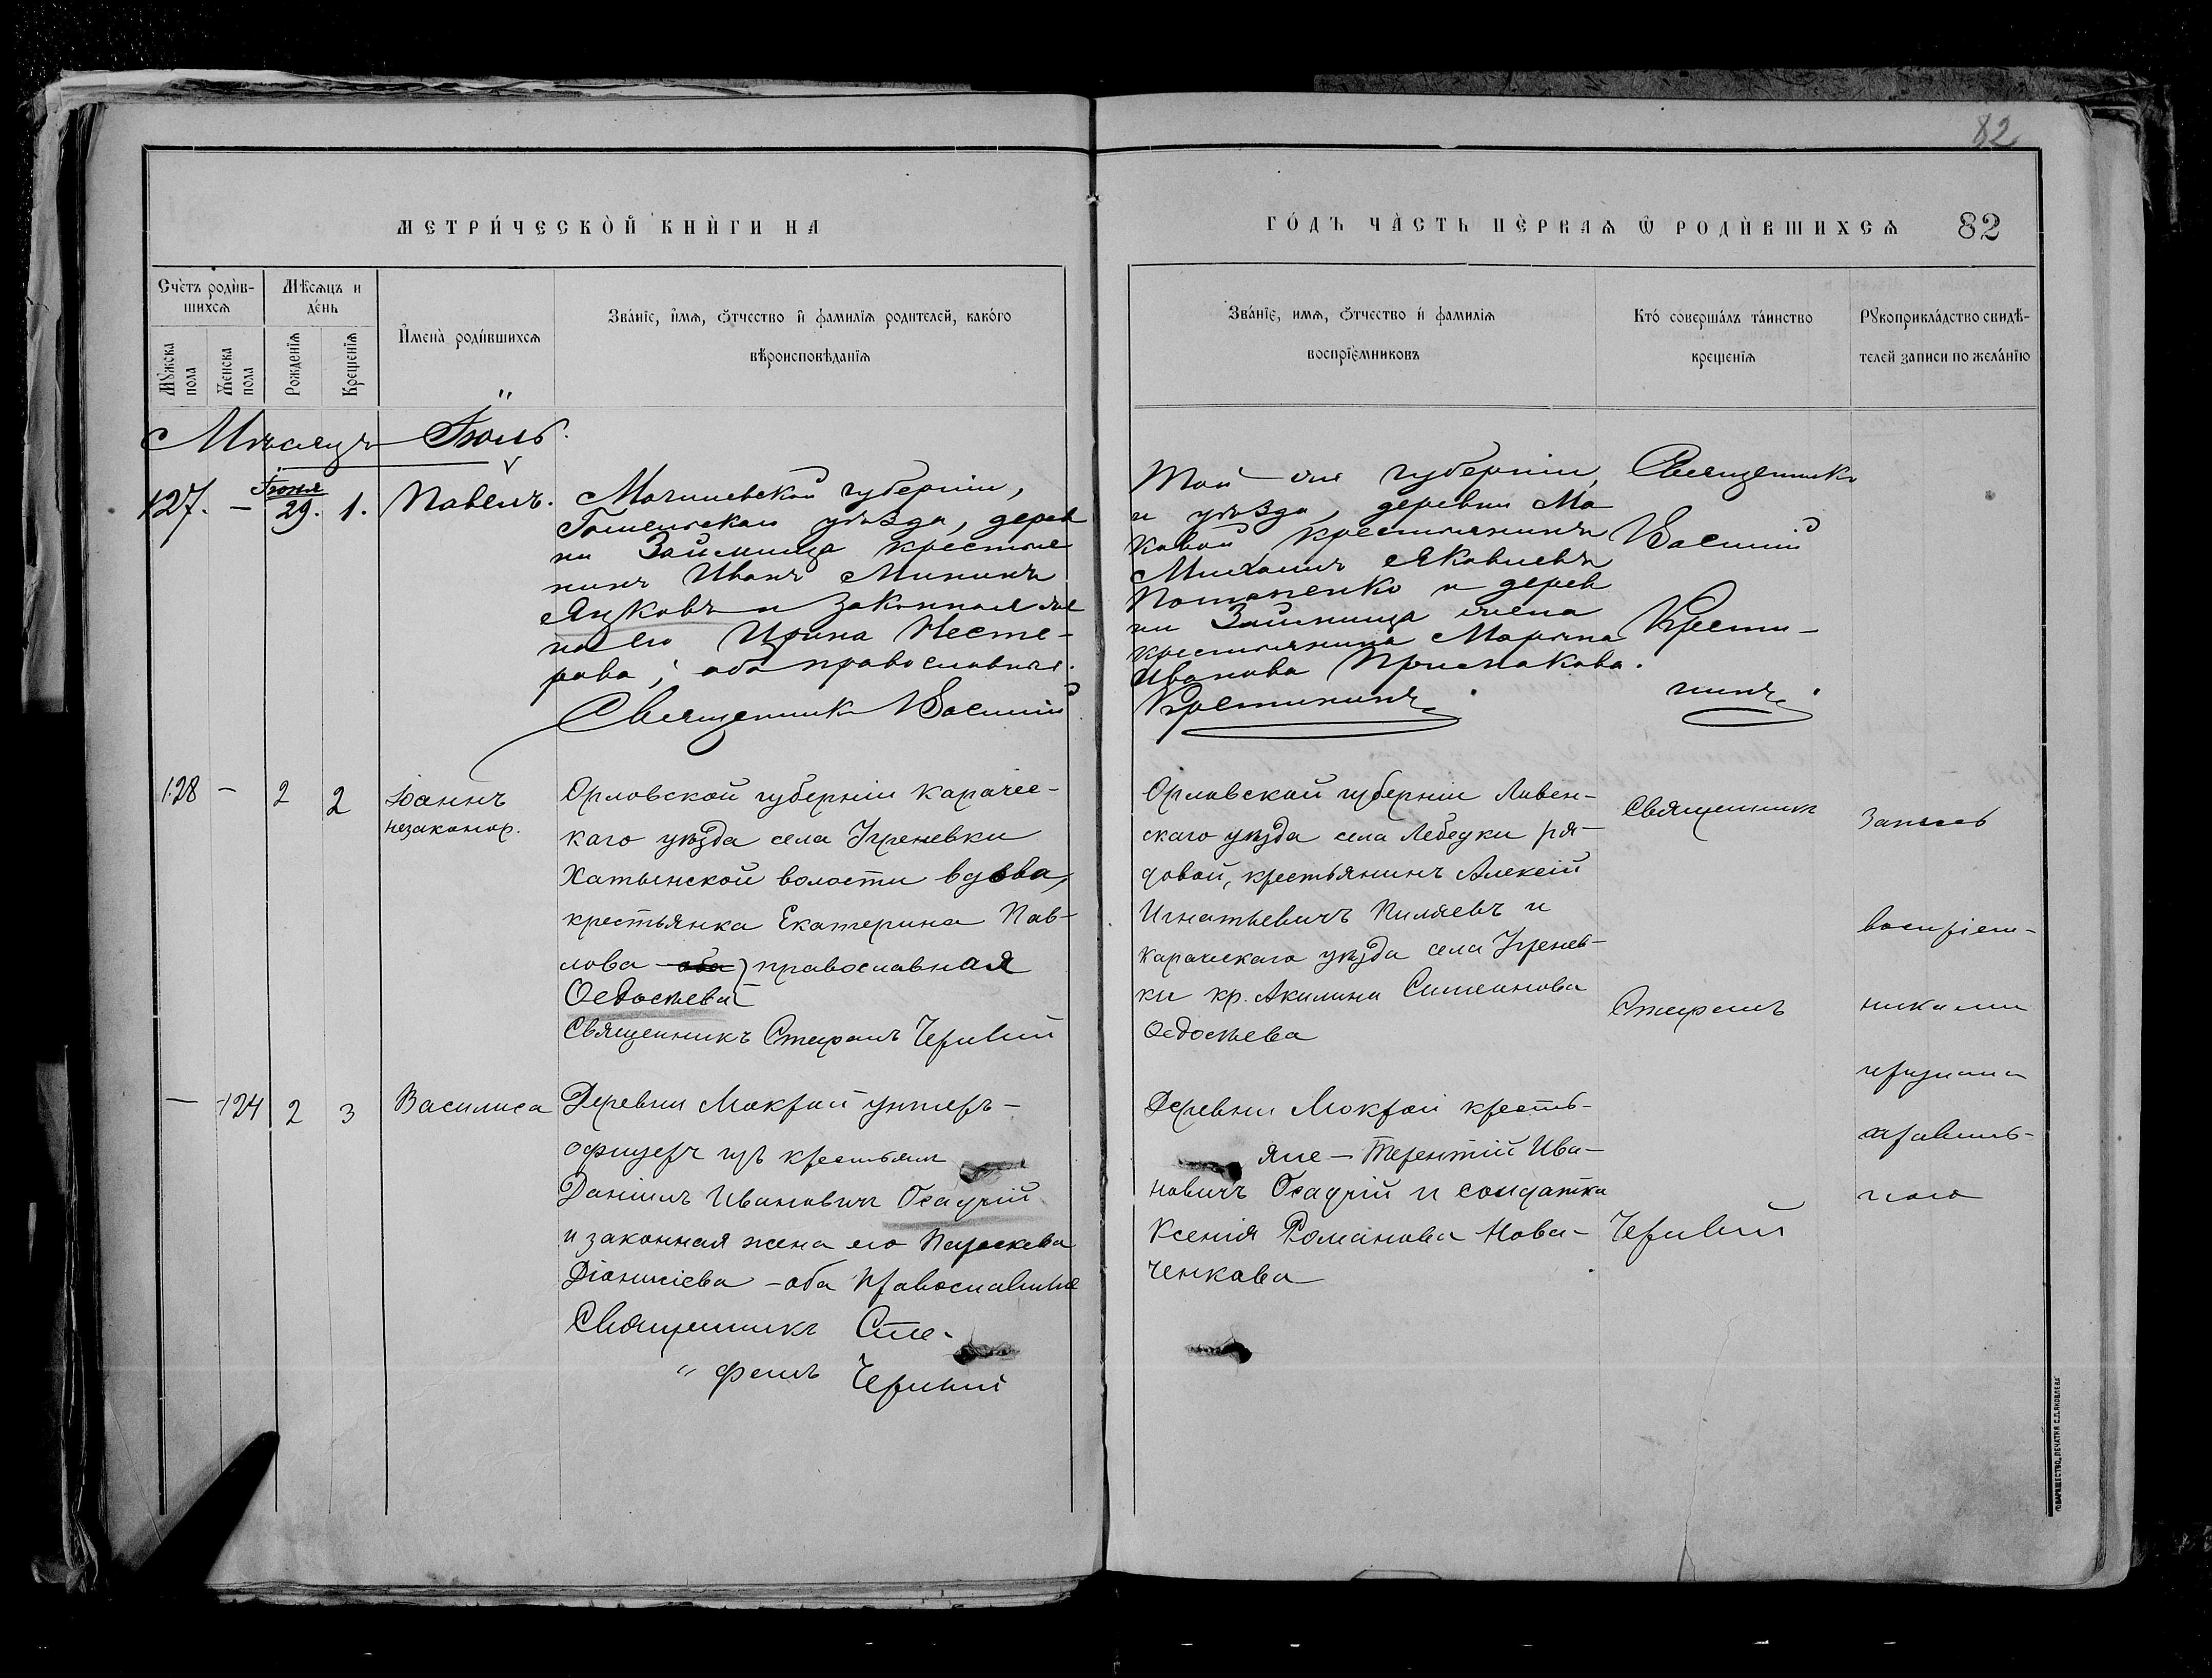 82
МЕТРИ́ЧЕСКО̀Й КНЍГИ НА
ГО́ДЪ ЧА̀СТЬ ПЀРВАѦ Ѿ РОДЍВШИХСѦ 82
Счѐтъ родѝв-
шихсѧ
Мѣ́сѧцъ и
де́нь
Мꙋ́жеска
пола
Же́неска
пола
Рожде́нїѧ
Креще́нїѧ
И҆мена̀ роди́вшихсѧ
Зва́нїе, и҆́мѧ, ѻ҆́тчество и҆ фамилїѧ родителей, како́го
вѣроисповѣ́данїѧ
Зва́нїе, имѧ, ѻ҆́тчество и҆ фамилїѧ
воспрїе́мниковъ
Кто́ соверша́лъ та́инство
креще́нїѧ
Рꙋкоприкла́дство свидѣ́-
телей записи по жела́нїю
Мѣсяцъ Іюль.
127. — Іюня 29. 1. Павелъ.
Могилевской губерніи,
Гомельскаго уѣзда, дерев
ни Займища крестья
нинъ Иванъ Мининъ
Яцковъ и законная же
на его Ирина Несте-
рова; оба православные.
Священникъ Василій
Той же губерніи,
и уѣзда, деревни Ма
ковой крестьянинъ
Михаилъ Яковлевъ
Потапенко и дерев
ни Займища жена
крестьянина Марѳа
Иванова Примакова.
Крестининъ
Священникъ
Василій
Крести-
нинъ
128 — 2 2 Іоаннъ
незаконор.
Орловской губерніи Карачев-
каго уѣзда села Угреневки
Хатынской волости вдова,
крестьянка Екатерина Пав-
лова оба) православная
Ѳедосѣева
Священникъ Стефанъ Черивій
Орловской губерніи Ливен-
скаго уѣзда села Лебедки ря-
довой, крестьянинъ Алексій
Игнатьевичъ Пиляевъ и
Карачевскаго уѣзда села Угренев-
ки кр. Акилина Симеонова
Ѳедосѣева
Священникъ
Стефанъ
Черивій
Запись
воспріем-
никами
признана
правиль-
ною
— 124 2 3 Василиса
Деревни Мокрой унтеръ-
офицеръ изъ крестьянъ
Даніилъ Ивановичъ Осадчій
и законная жена его Параскева
Діонисіева — оба Православные
Священникъ Сте-
" фанъ Черивій
Деревни Мокрой кресть-
яне — Терентій Ива-
новичъ Осадчій и солдатка
Ксенія Романова Нова-
ченкова
ТОВАРИЩЕСТВО „ПЕЧАТНЯ С.П.ЯКОВЛЕВА"